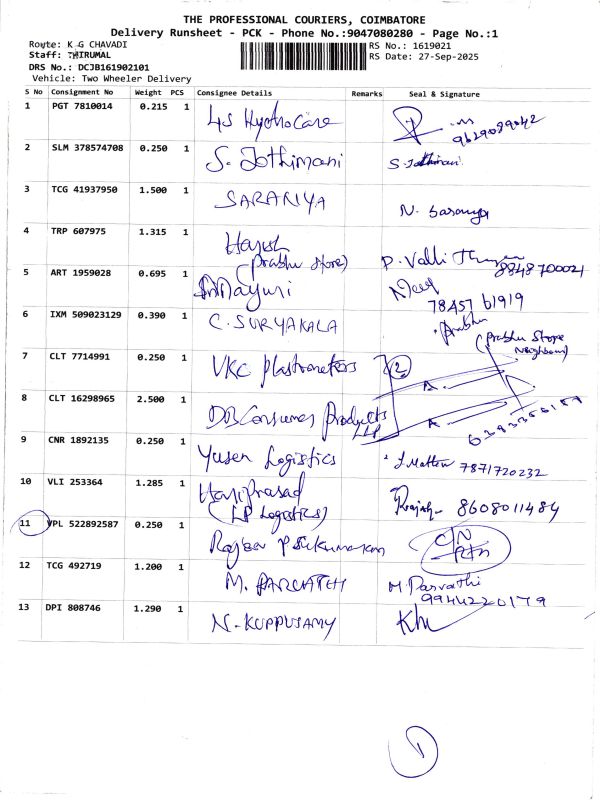 THE PROFESSIONAL COURIERS, COIMBATORE
Delivery Runsheet - PCK - Phone No.:9047080280 - Page No.:1
Route: K G CHAVADI
Staff: THIRUMAL
DRS No.: DCJB161902101
Vehicle: Two Wheeler Delivery
RS No.: 1619021
RS Date: 27-Sep-2025
S No Consignment No Weight PCS Consignee Details Remarks Seal & Signature
1 PGT 7810014 0.215 1 9629089042
2 SLM 378574708 0.250 1 S. Jothimani S. Jothimani
3 TCG 41937950 1.500 1 SARANYA N. Saranya
4 TRP 607975 1.315 1 Harish P. Valli
(Prabhu Store) 8848700021
5 ART 1959028 0.695 1 Sri Mayuri
78457 61919
6 IXM 509023129 0.390 1 C. SURYAKALA Prabhu
(Prabhu Store
Neighbour)
7 CLT 7714991 0.250 1 VKC Plastometers 2
8 CLT 16298965 2.500 1 DB Consumer Products
LLP
9 CNR 1892135 0.250 1 Yusen Logistics 7871720232
10 VLI 253364 1.285 1 Hariprasad
(LP Logistics) 8608011484
11 VPL 522892587 0.250 1 Rajeev P Sukumaran C/N
Rtn
12 TCG 492719 1.200 1 M. PARVATHI M. Parvathi
9944220179
13 DPI 808746 1.290 1 N. KUPPUSAMY
1